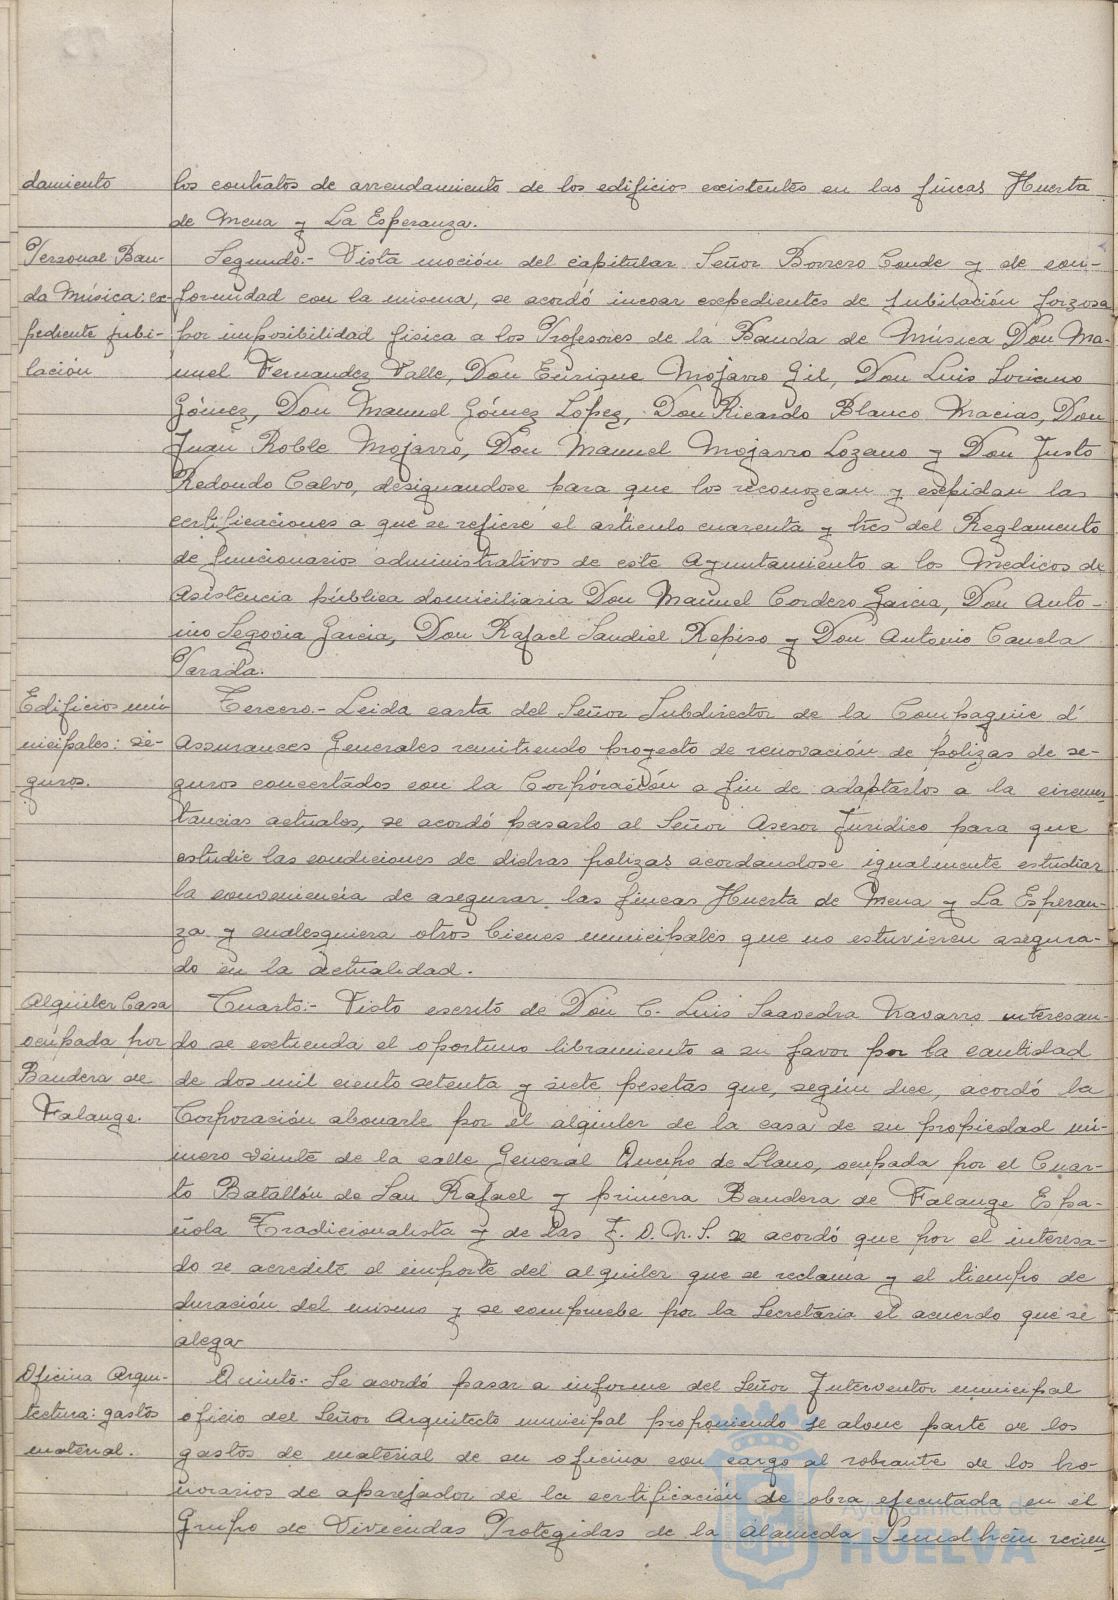 damiento
los contratos de arrendamiento de los edificios existentes en las fincas Huerta
de Mena y La Esperanza.
Personal Ban-
da Música: ex-
pediente jubi-
lación
Segundo.- Vista moción del capitular Señor Borrero Conde y de con-
formidad con la misma, se acordó incoar expedientes de jubilación forzosa
por imposibilidad fisica a los Profesores de la Banda de Música Don Ma-
nuel Fernandez Valle, Don Enrique Mojarro Gil, Don Luis Soriano
Gómez, Don Manuel Gómez López, Don Ricardo Blanco Macias, Don
Juan Roble Mojarro, Don Manuel Mojarro Lozano y Don Justo
Redondo Calvo, designandose para que los reconozcan y expidan las
certificaciones a que se refiere el articulo cuarenta y tres del Reglamento
de funcionarios administrativos de este Ayuntamiento a los Medicos de
Asistencia pública domiciliaria Don Manuel Cordero Garcia, Don Anto-
nio Segovia Garcia, Don Rafael Saudiel Repiso y Don Antonio Canela
Parada.
Edificios mu-
nicipales: se-
guros.
Tercero.- Leida carta del Señor Subdirector de la Compagnie d'
Assurances Generales remitiendo proyecto de renovación de polizas de se-
guros concertados con la Corporación a fin de adaptarlos a la circuns-
tancias actuales, se acordó pasarlo al Señor Asesor Juridico para que
estudie las condiciones de dichas polizas acordandose igualmente estudiar
la conveniencia de asegurar las fincas Huerta de Mena y La Esperan-
za y cualesquiera otros bienes municipales que no estuvieren asegura-
do en la actualidad.
Alquiler Casa
ocupada por
Bandera de
Falange.
Cuarto.- Visto escrito de Don C. Luis Saavedra Navarro interesan-
do se extienda el oportuno libramiento a su favor por la cantidad
de dos mil ciento setenta y siete pesetas que, según dice, acordó la
Corporación abonarle por el alquiler de la casa de su propiedad nú-
mero veinte de la calle General Queipo de Llano, ocupada por el Cuar-
to Batallón de San Rafael y primera Bandera de Falange Espa-
ñola Tradicionalista y de las J. O. N. S. se acordó que por el interesa-
do se acredite el importe del alquiler que se reclama y el tiempo de
duración del mismo y se compruebe por la Secretaria el acuerdo que se
alega
Oficina Arqui-
tectura: gastos
material.
Quinto.- Se acordó pasar a informe del Señor Interventor municipal
oficio del Señor Arquitecto municipal proponiendo se abone parte de los
gastos de material de su oficina con cargo al sobrante de los ho-
norarios de aparejador de la certificación de obra ejecutada en el
Grupo de Viviendas Protegidas de la Alameda Sundheim recien-
Ayuntamiento de
HUELVA